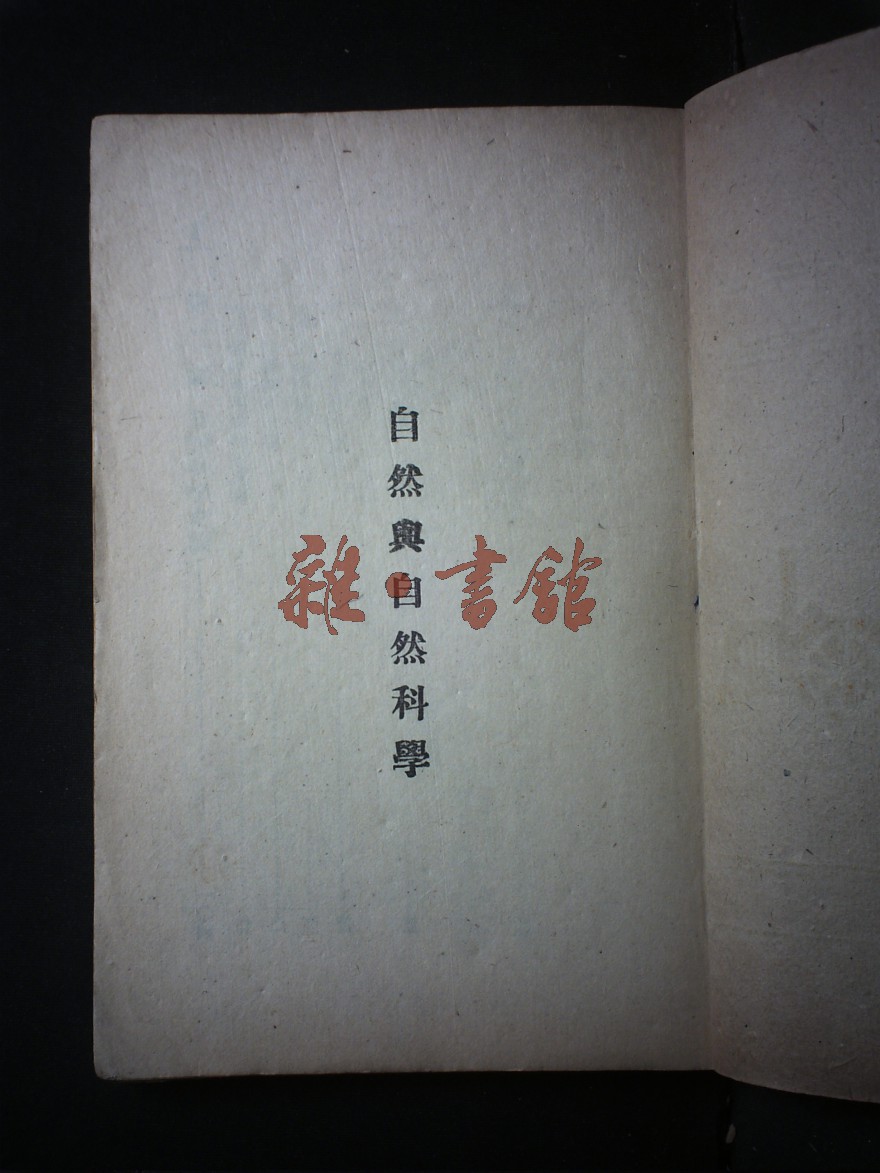 自然與自然科學
雜·書館